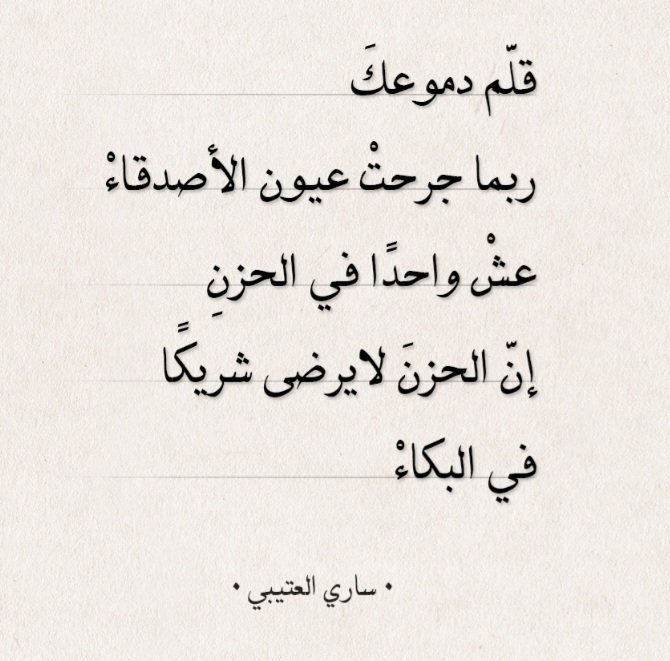 قلّم دموعكَ
ربما جرحتْ عيون الأصدقاءْ
عشْ واحدًا في الحزنِ
إنّ الحزنَ لايرضى شريكًا
في البكاءْ
• ساري العتيبي •